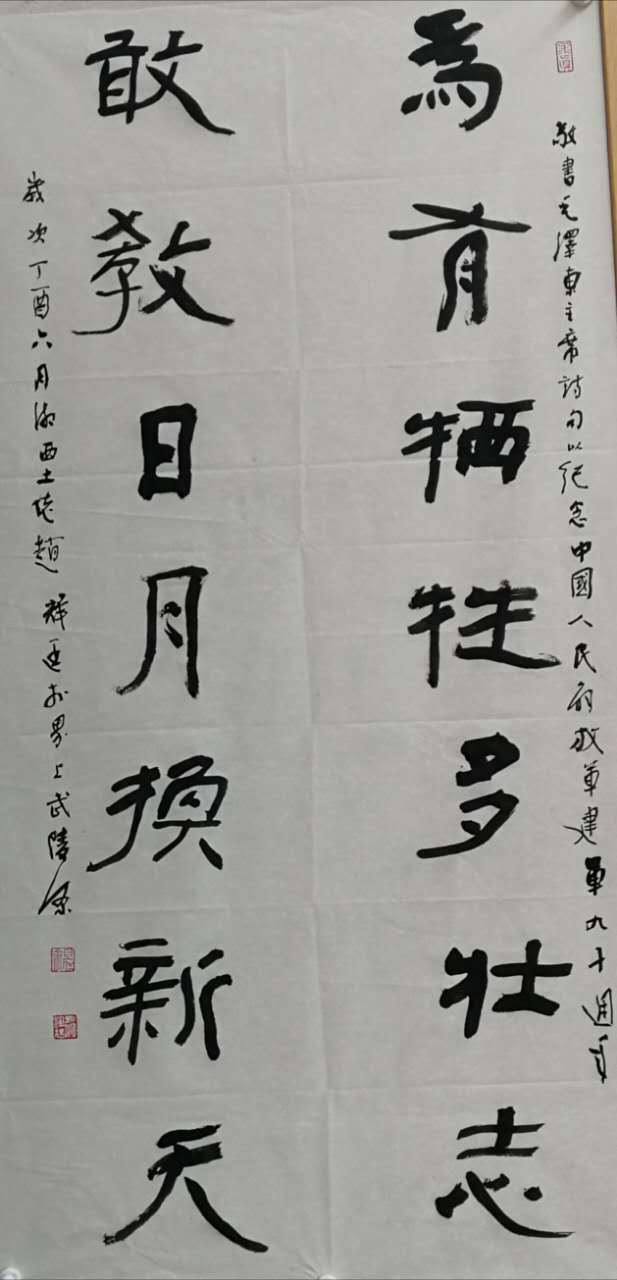 敬書毛澤東主席詩句以紀念中國人民解放軍建軍九十週年
為有犧牲多壯志
敢教日月換新天
歲次丁酉六月湘西土佬趙輝廷於界上武陵源